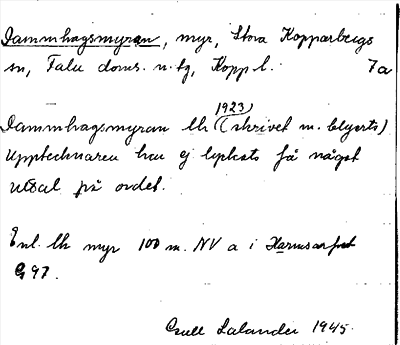 Dammhagsmyran, myr, Stora Kopparbergs
sn, Falu doms. n. tg, Kopp. l. 7a
1923
Dammhagsmyran lk (skrivet m. blyerts)
Upptecknaren har ej lyckats få något
uttal på ordet.
Enl. lk myr 100 m. NV a i
G 97.
Gull Salander 1945.